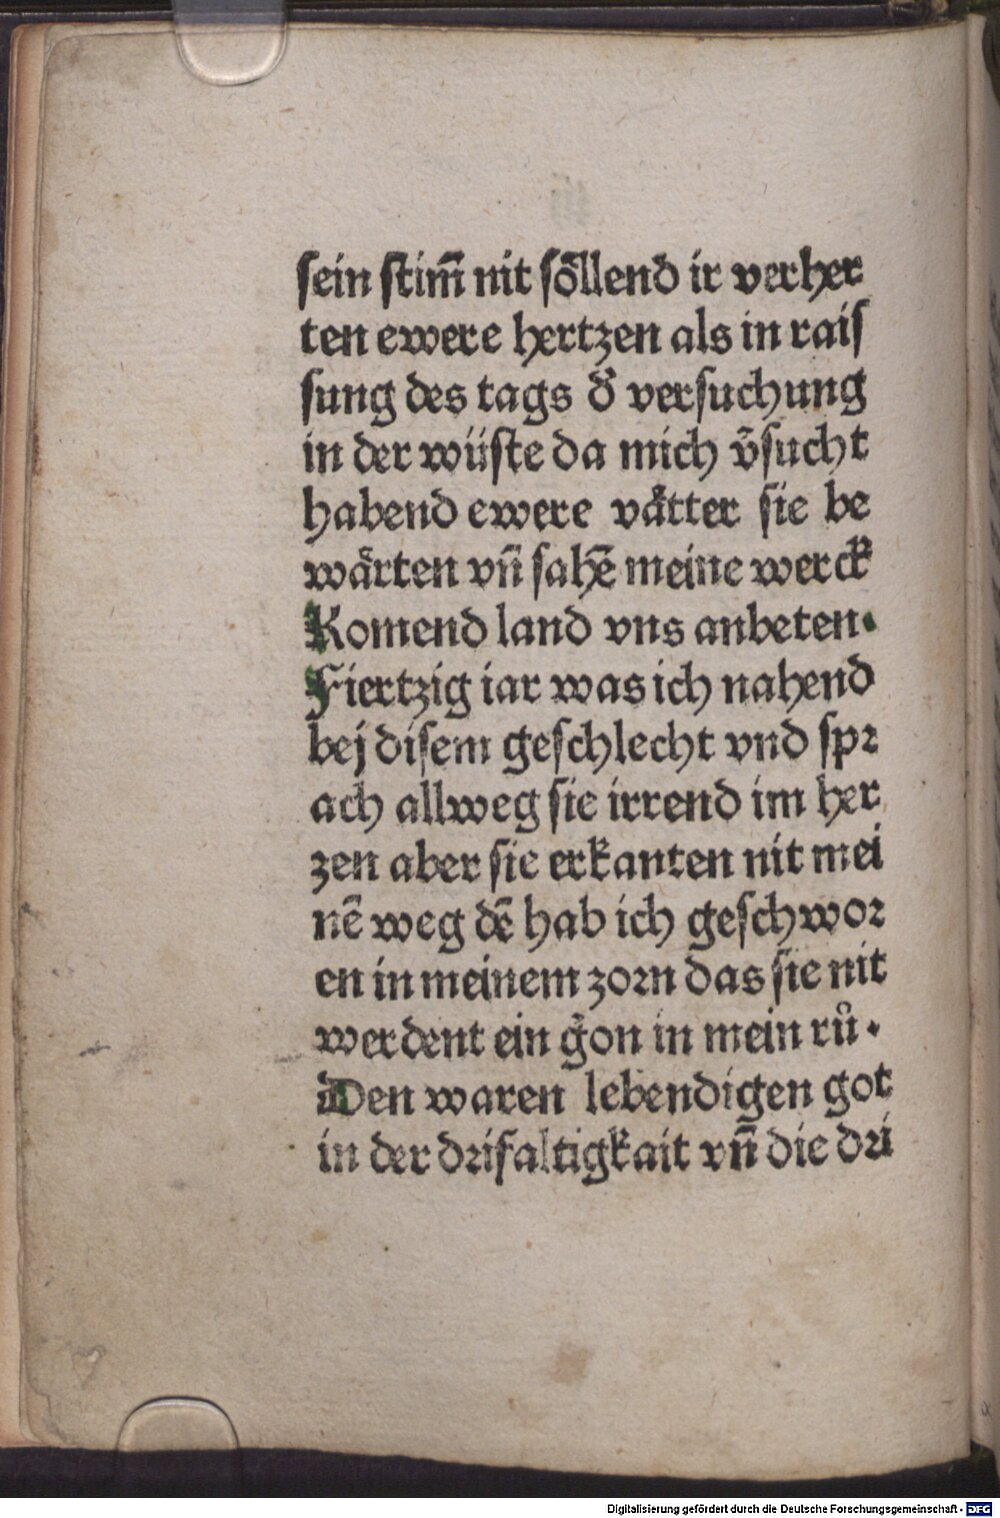 sein stim̄ nit söllend ir verher
ten ewere hertzen als in rais
sung des tags d̕ versuchung
in der wüste da mich v̄sucht
habend ewere vätter sie be
wärten vn̄ sahē meine werck
Komend land vns anbeten.
Fiertzig iar was ich nahend
bej disem geschlecht vnd spr
ach allweg sie irrend im her
zen aber sie erkanten nit mei
nē weg dē hab ich geschwor
en in meinem zorn das sie nit
werdent ein gͦon in mein rů.
Den waren lebendigen got
in der drifaltigkait vn̄ die dri
Digitalisierung gefördert durch die Deutsche Forschungsgemeinschaft - DFG